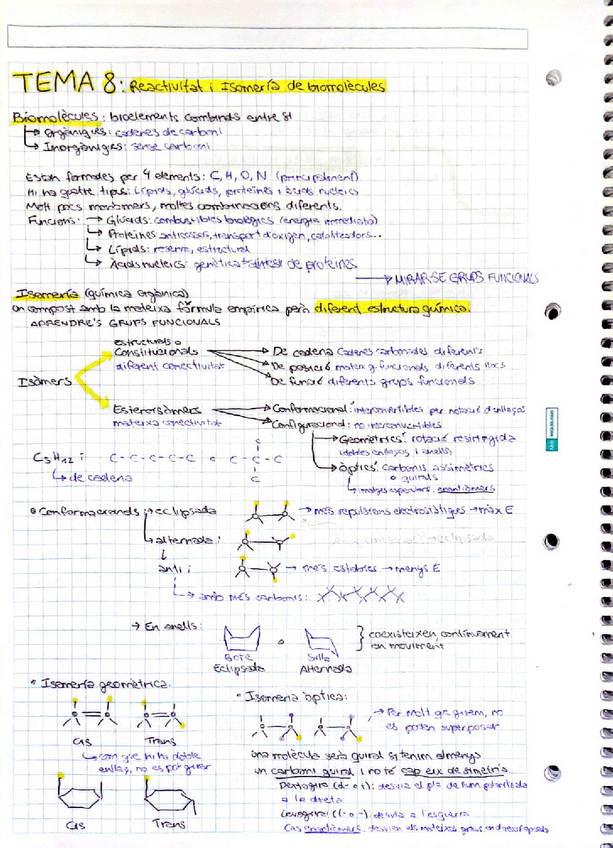 TEMA 8: Reactivitat i Isomería de biomolècules
Biomolècules: bioelements combinats entre sí
→ Orgàniques: cadenes de carboni
→ Inorgàniques: sense carboni
Estan formades per 4 elements: C, H, O, N (principalment)
Hi ha quatre tipus: lípids, glúcids, proteïnes i àcids nucleics
Molt pocs monòmers, moltes combinacions diferents.
Funcions: → Glúcids: combustibles biològics (energia immediata)
→ Proteïnes: anticossos, transport d'oxigen, catalitzadors...
→ Lípids: reserva, estructural
→ Àcids nucleics: genètica + síntesi de proteïnes
→ MIRAR-SE GRUPS FUNCIONALS
Isomería (química orgànica)
un compost amb la mateixa fórmula empírica però diferent estructura química.
APRENDRE'S GRUPS FUNCIONALS
Isòmers
estructurals o
Constitucionals
diferent conectivitat
→ De cadena cadenes carbonades diferents
→ De posició mateix g. funcionals diferents llocs
→ De funció diferents grups funcionals
Estereoisòmers
mateixa conectivitat
→ Conformacional: interconvertibles per rotació d'enllaços
→ Configuracional: no interconvertibles
→ Geomètrics: rotació restringida
(dobles enllaços i anells)
→ Òptics: carbonis assimètrics
o quirals
→ imatges especulars, enantiòmers
C5H12: C-C-C-C-C o C-C-C
C
C
→ de cadena
Conformacionals: → eclipsada → més repulsions electrostàtiques → màx E
→ alternada:
anti: → més estables → menys E
→ amb més carbonis:
→ En anells:
Bote
Eclipsada
o
Silla
Alternada
coexisteixen, contínuament
en moviment
Isomería geomètrica:
Cis Trans
→ com que hi ha doble
enllaç, no es pot girar
Cis Trans
Isomeria òptica:
→ Per molt que girem, no
es poden superposar
una molècula serà quiral si tenim almenys
un carboni quiral i no té cap eix de simetria
Dextògira (d- o +): desvia el pla de llum polaritzada
a la dreta
Levògira (l- o -): desvia a l'esquerra
Cas enantiòmers: desvien els mateixos graus en direcció oposada